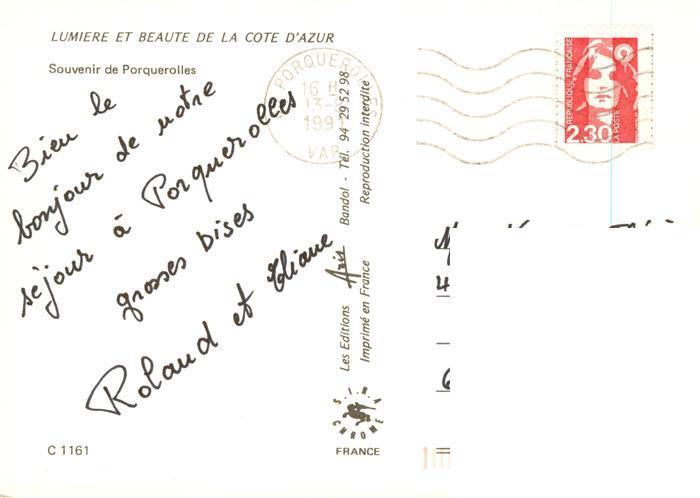 LUMIERE ET BEAUTE DE LA COTE D'AZUR
Souvenir de Porquerolles
Bien le
bonjour de notre
séjour à Porquerolles
grosses bises
Roland et Eliane
C 1161
Les Editions Aris Bandol - Tél. 94 29 52 98
Imprimé en France Reproduction interdite
S.I.R.A
CHROME
FRANCE
PORQUEROLLES
16 H
VAR
REPUBLIQUE FRANÇAISE
2,30
LA POSTE